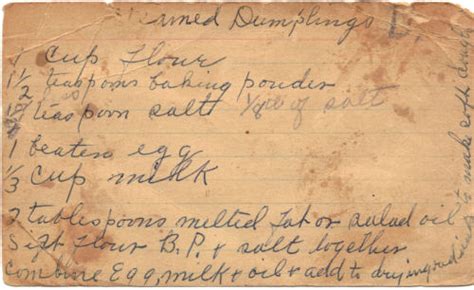 Dumplings
1 cup flour
1 1/2 teaspoons baking powder
1/2 teaspoon salt 1/8 of salt
1 beaten egg
1/3 cup milk
2 tablespoons melted fat or salad oil
Sift flour B.P. + salt together
Combine Egg, milk + oil + add to dry ingredients
to make soft